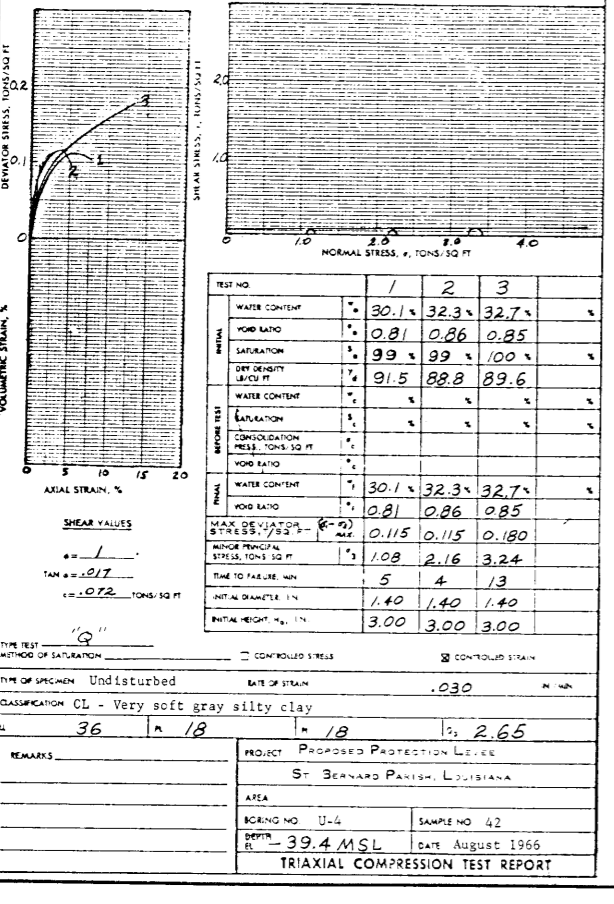 DEVIATOR STRESS, TONS/SQ FT
0.2
0.1
0
3
1
2
SHEAR STRESS, τ, TONS/SQ FT
2.0
1.0
0 1.0 2.0 3.0 4.0
NORMAL STRESS, σ, TONS/SQ FT
VOLUMETRIC STRAIN, %
0 5 10 15 20
AXIAL STRAIN, %
TEST NO. 1 2 3
INITIAL
WATER CONTENT 30.1 % 32.3 % 32.7 % %
VOID RATIO 0.81 0.86 0.85
SATURATION 99 % 99 % 100 % %
DRY DENSITY LB/CU FT 91.5 88.8 89.6
BEFORE TEST
WATER CONTENT % % % %
SATURATION % % % %
CONSOLIDATION PRESS., TONS/SQ FT
VOID RATIO
FINAL
WATER CONTENT 30.1 % 32.3 % 32.7 % %
VOID RATIO 0.81 0.86 0.85
MAX DEVIATOR STRESS, /SQ FT MAX. 0.115 0.115 0.180
MINOR PRINCIPAL STRESS, TONS SQ FT σ3 1.08 2.16 3.24
TIME TO FAILURE, MIN 5 4 13
INITIAL DIAMETER, IN. 1.40 1.40 1.40
INITIAL HEIGHT, H₀, IN. 3.00 3.00 3.00
SHEAR VALUES
ø = 1 °
TAN ø = .017
c = .072 TONS/SQ FT
TYPE TEST "Q"
METHOD OF SATURATION
CONTROLLED STRESS
CONTROLLED STRAIN
TYPE OF SPECIMEN Undisturbed RATE OF STRAIN .030
CLASSIFICATION CL - Very soft gray silty clay
36 18 18 2.65
REMARKS
PROJECT PROPOSED PROTECTION LEVEE
ST BERNARD PARISH, LOUISIANA
AREA
BORING NO. U-4 SAMPLE NO 42
DEPTH EL -39.4 MSL DATE August 1966
TRIAXIAL COMPRESSION TEST REPORT